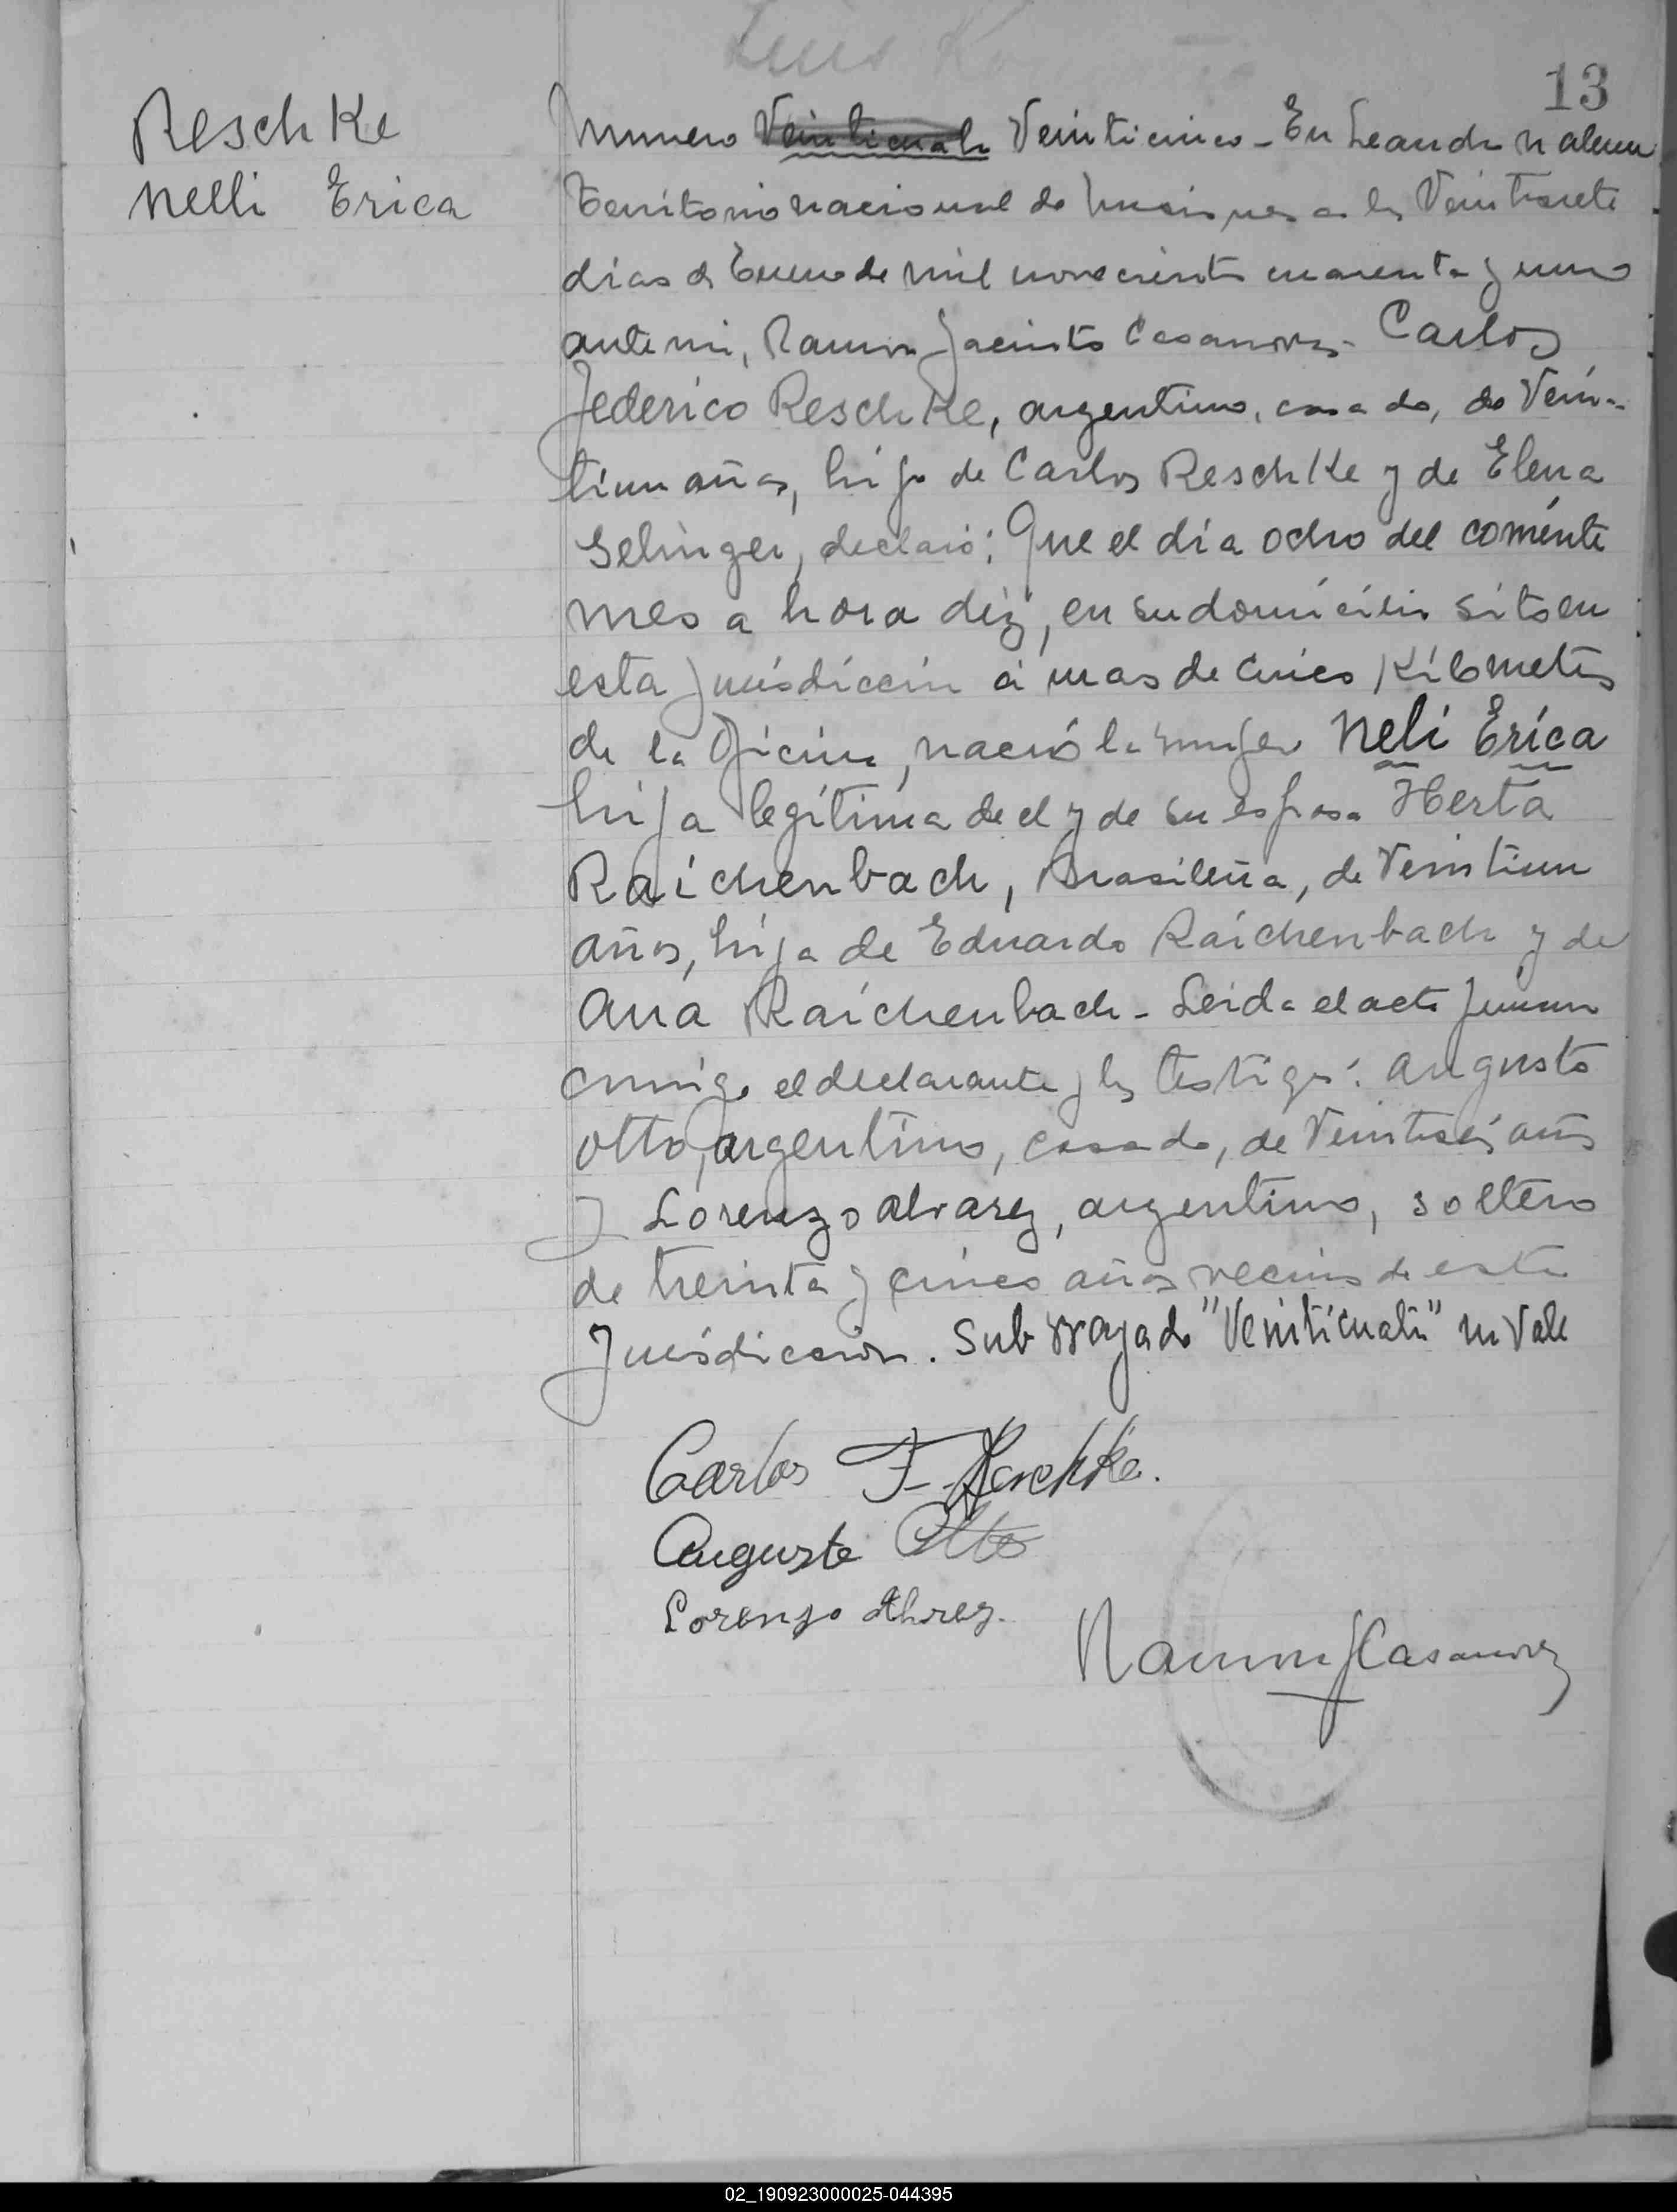 13
Reschke
Nelli Erica
Numero Veinticuatro Veinticinco - En Leandro N Alem
Territorio nacional de Misiones a los Veintisiete
dias de Enero de mil novecientos cuarenta y uno
ante mi, Ramon Jacinto Casanova - Carlos
Federico Reschke, argentino, casado, de Vein-
tiun años, hijo de Carlos Reschke y de Elena
Selinger, declaró: Que el día ocho del corriente
mes a hora diez, en su domicilio sito en
esta Jurisdiccion a mas de cinco Kilometros
de la Oficina, nació la mujer Neli Erica
hija legítima de el y de su esposa Herta
Raichenbach, Brasileña, de Veintiun
años, hija de Eduardo Raichenbach y de
Ana Raichenbach - Leida el acta firman
conmigo el declarante y los testigos: Augusto
Otto, argentino, casado, de Veintiseis años
y Lorenzo Alvarez, argentino, soltero
de treinta y cinco años vecinos de esta
Jurisdiccion. Sub rrayado "Veinticuatro" no Vale
Carlos F. Reschke.
Auguste Otto
Lorenzo Alvarez.
Ramon J Casanova
02_190923000025-044395